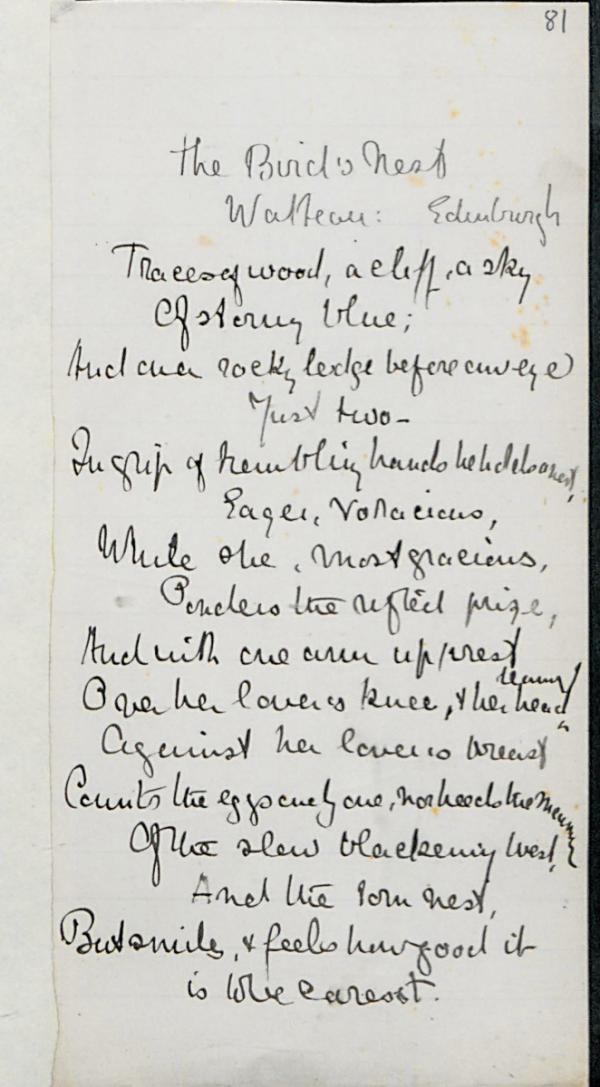 81
The Bird's Nest
Watteau: Edinburgh
Traces of wood, a cliff, a sky
Of stormy blue;
And on a rocky ledge before our eye
Just two –
In grip of trembling hands he holds a nest,
Eager, Voracious,
While she, most gracious,
Ponders the rifled prize,
And with one arm up prest
Over her lover's knee, & her head
leaning
Against her lover's breast
Counts the eggs one by one, nor heeds the
Of the slow blackening West,
And the torn nest,
But smiles, & feels how good it
is to be caresst.